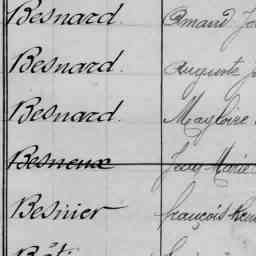 Besnard Amand
Besnard. Auguste
Besnard. Magloire
Besneux Jean Marie
Besnier François René